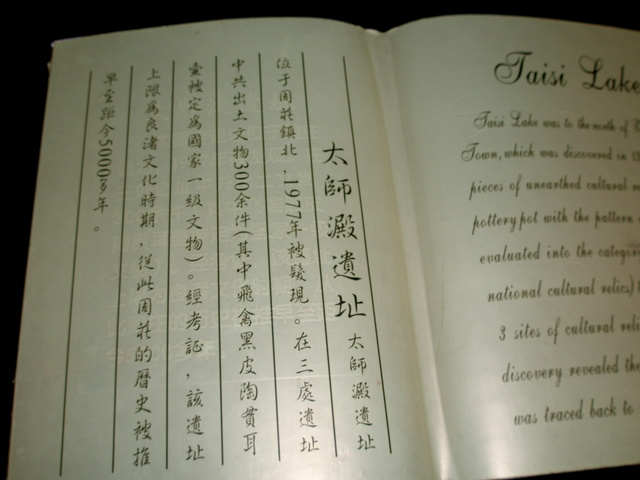 太師澱遺址
太師澱遺址
位于周莊鎮北，1977年被發現。在三處遺址
中共出土文物300余件（其中飛禽黑皮陶貫耳
壺被定為國家一級文物）。經考証，該遺址
上限為良渚文化時期，從此周莊的曆史被推
早至距今5000多年。
Taisi Lake
Taisi Lake was to the north of
Town, which was discovered in
pieces of unearthed cultural
pottery pot with the pattern
evaluated into the
national cultural relics)
3 sites of cultural
discovery revealed the
was traced back to